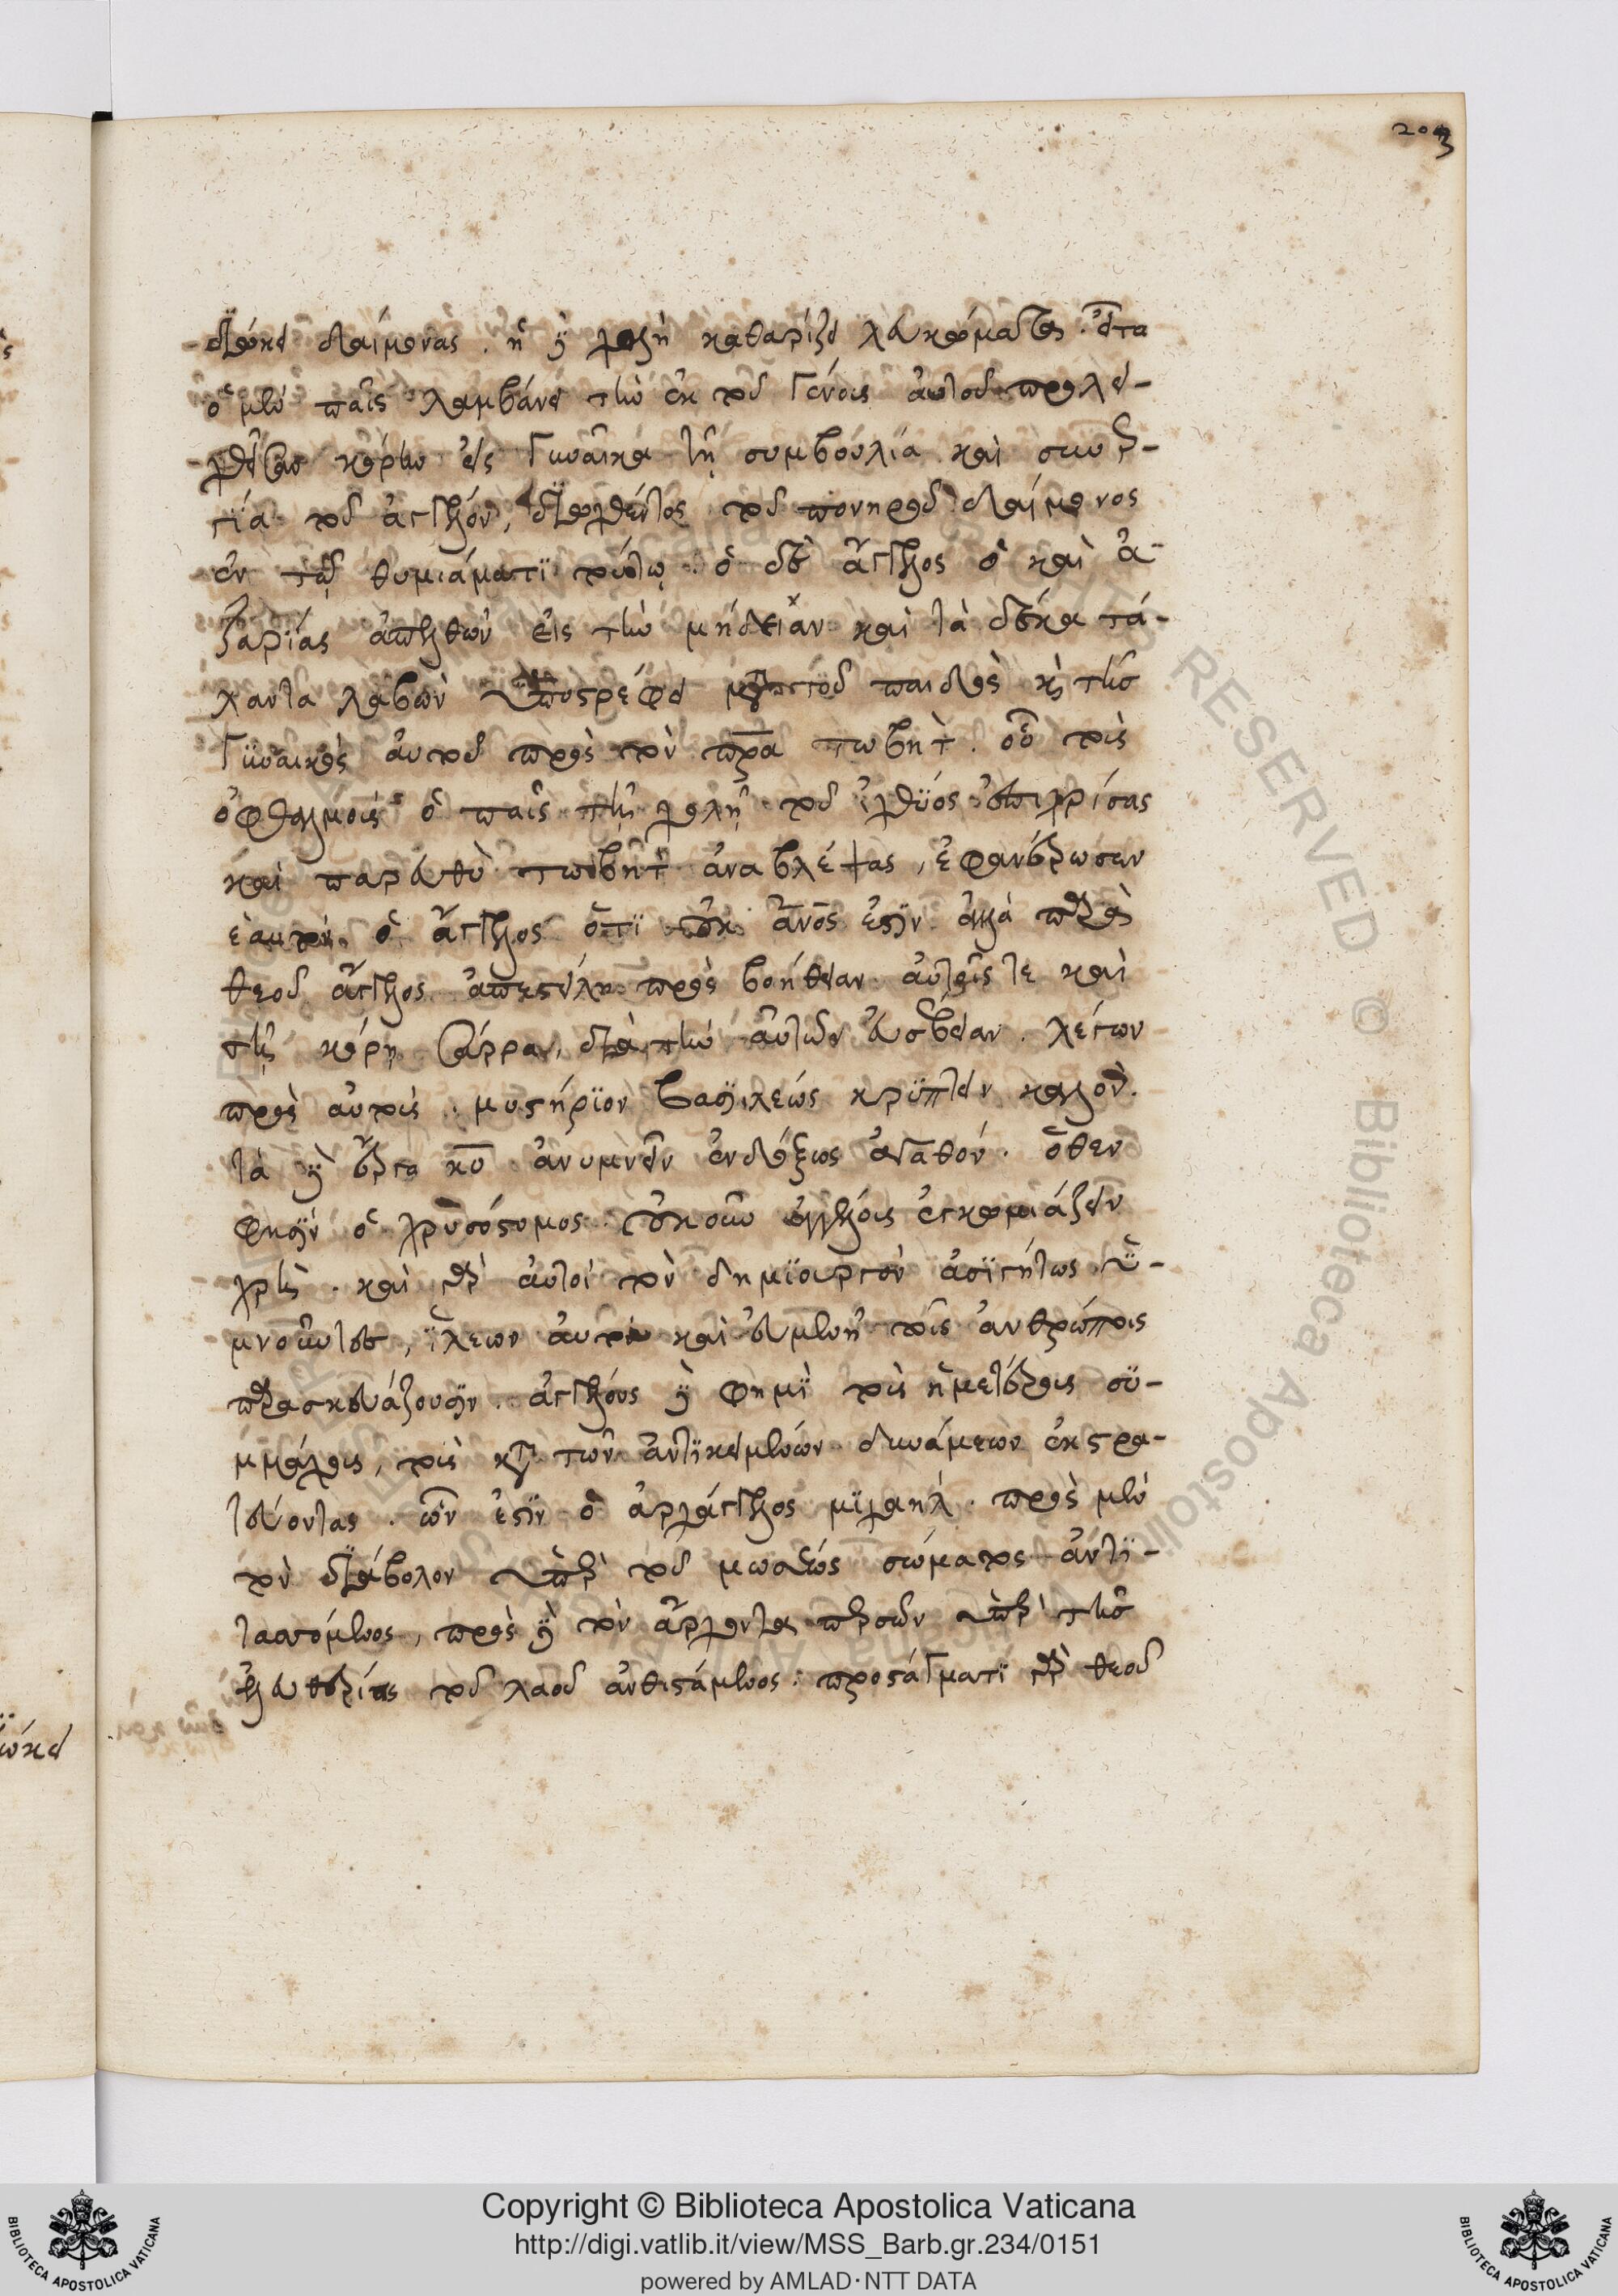 203
διώκει δαίμονας. ἡ δὲ χολὴ καθαρίζει λευκώματα. εἶτα
ὁ μὲν παῖς λαμβάνει τὴν ἐκ τοῦ γένους αὐτοῦ προλε-
χθεῖσαν κόρην εἰς γυναῖκα τῇ συμβουλία καὶ συνερ-
γία τοῦ ἀγγέλου, διωχθέντος τοῦ πονηροῦ δαίμονος
ἐν τῷ θυμιάματι τούτῳ. ὁ δὲ ἄγγελος ὁ καὶ ἀ-
ζαρίας ἀπελθὼν εἰς τὴν μήδειαν καὶ τὰ δέκα τά-
λαντα λαβὼν ὑποστρέφει μετὰ τοῦ παιδὸς καὶ τῆς
γυναικὸς αὐτοῦ πρὸς τὸν πρα τωβήτ. οὗ τοὺς
ὀφθαλμοὺς ὁ παῖς τῇ χολῇ τοῦ ἰχθύος ἐπιχρίσας
καὶ παρευθὺ τωβὴτ ἀναβλέψας, ἐφανέρωσεν
ἑαυτὸν ὁ ἄγγελος ὅτι οὐκ ἄνος ἐστὶν ἀλλὰ παρὰ
θεοῦ ἄγγελος ἀπεστάλη πρὸς βοήθειαν αὐτοῖς τε καὶ
τῇ κόρῃ σάρραν, διὰ τὴν αὐτῶν εὐσέβειαν. λέγων
πρὸς αὐτοὺς. μυστήριον βασιλέως κρύπτειν καλόν.
τὰ δὲ ἔργα κυ ἀνυμνεῖν ἐνδόξως ἀγαθόν. ὅθεν
φησὶν ὁ χρυσόστομος. οὐκοῦν ἀγγέλους ἐγκωμιάζειν
χρὴ. καὶ γὰρ αὐτοὶ τὸν δημιουργὸν ἀσιγήτως ὑ-
μνοῦντες, ἵλεων αὐτὸν καὶ εὐμενῆ τοῖς ἀνθρώποις
παρασκευάζουσιν. ἀγγέλους δὲ φημὶ τοὺς ἡμετέρους συ-
μμάχους, τοὺς κατὰ τῶν ἀντικειμένων δυνάμεων ἐκστρα-
τεύοντας. ὧν ἐστὶν ὁ ἀρχάγγελος μιχαὴλ. πρὸς μὲν
τὸν διάβολον ὑπὲρ τοῦ μωσέως σώματος ἀντι-
τασσόμενος, πρὸς δὲ τὸν ἄρχοντα περσῶν ὑπὲρ τῆς
ἐλευθερίας τοῦ λαοῦ ἀνθιστάμενος. προστάγματι γὰρ θεοῦ
ώκει
Copyright © Biblioteca Apostolica Vaticana
http://digi.vatlib.it/view/MSS_Barb.gr.234/0151
powered by AMLAD·NTT DATA